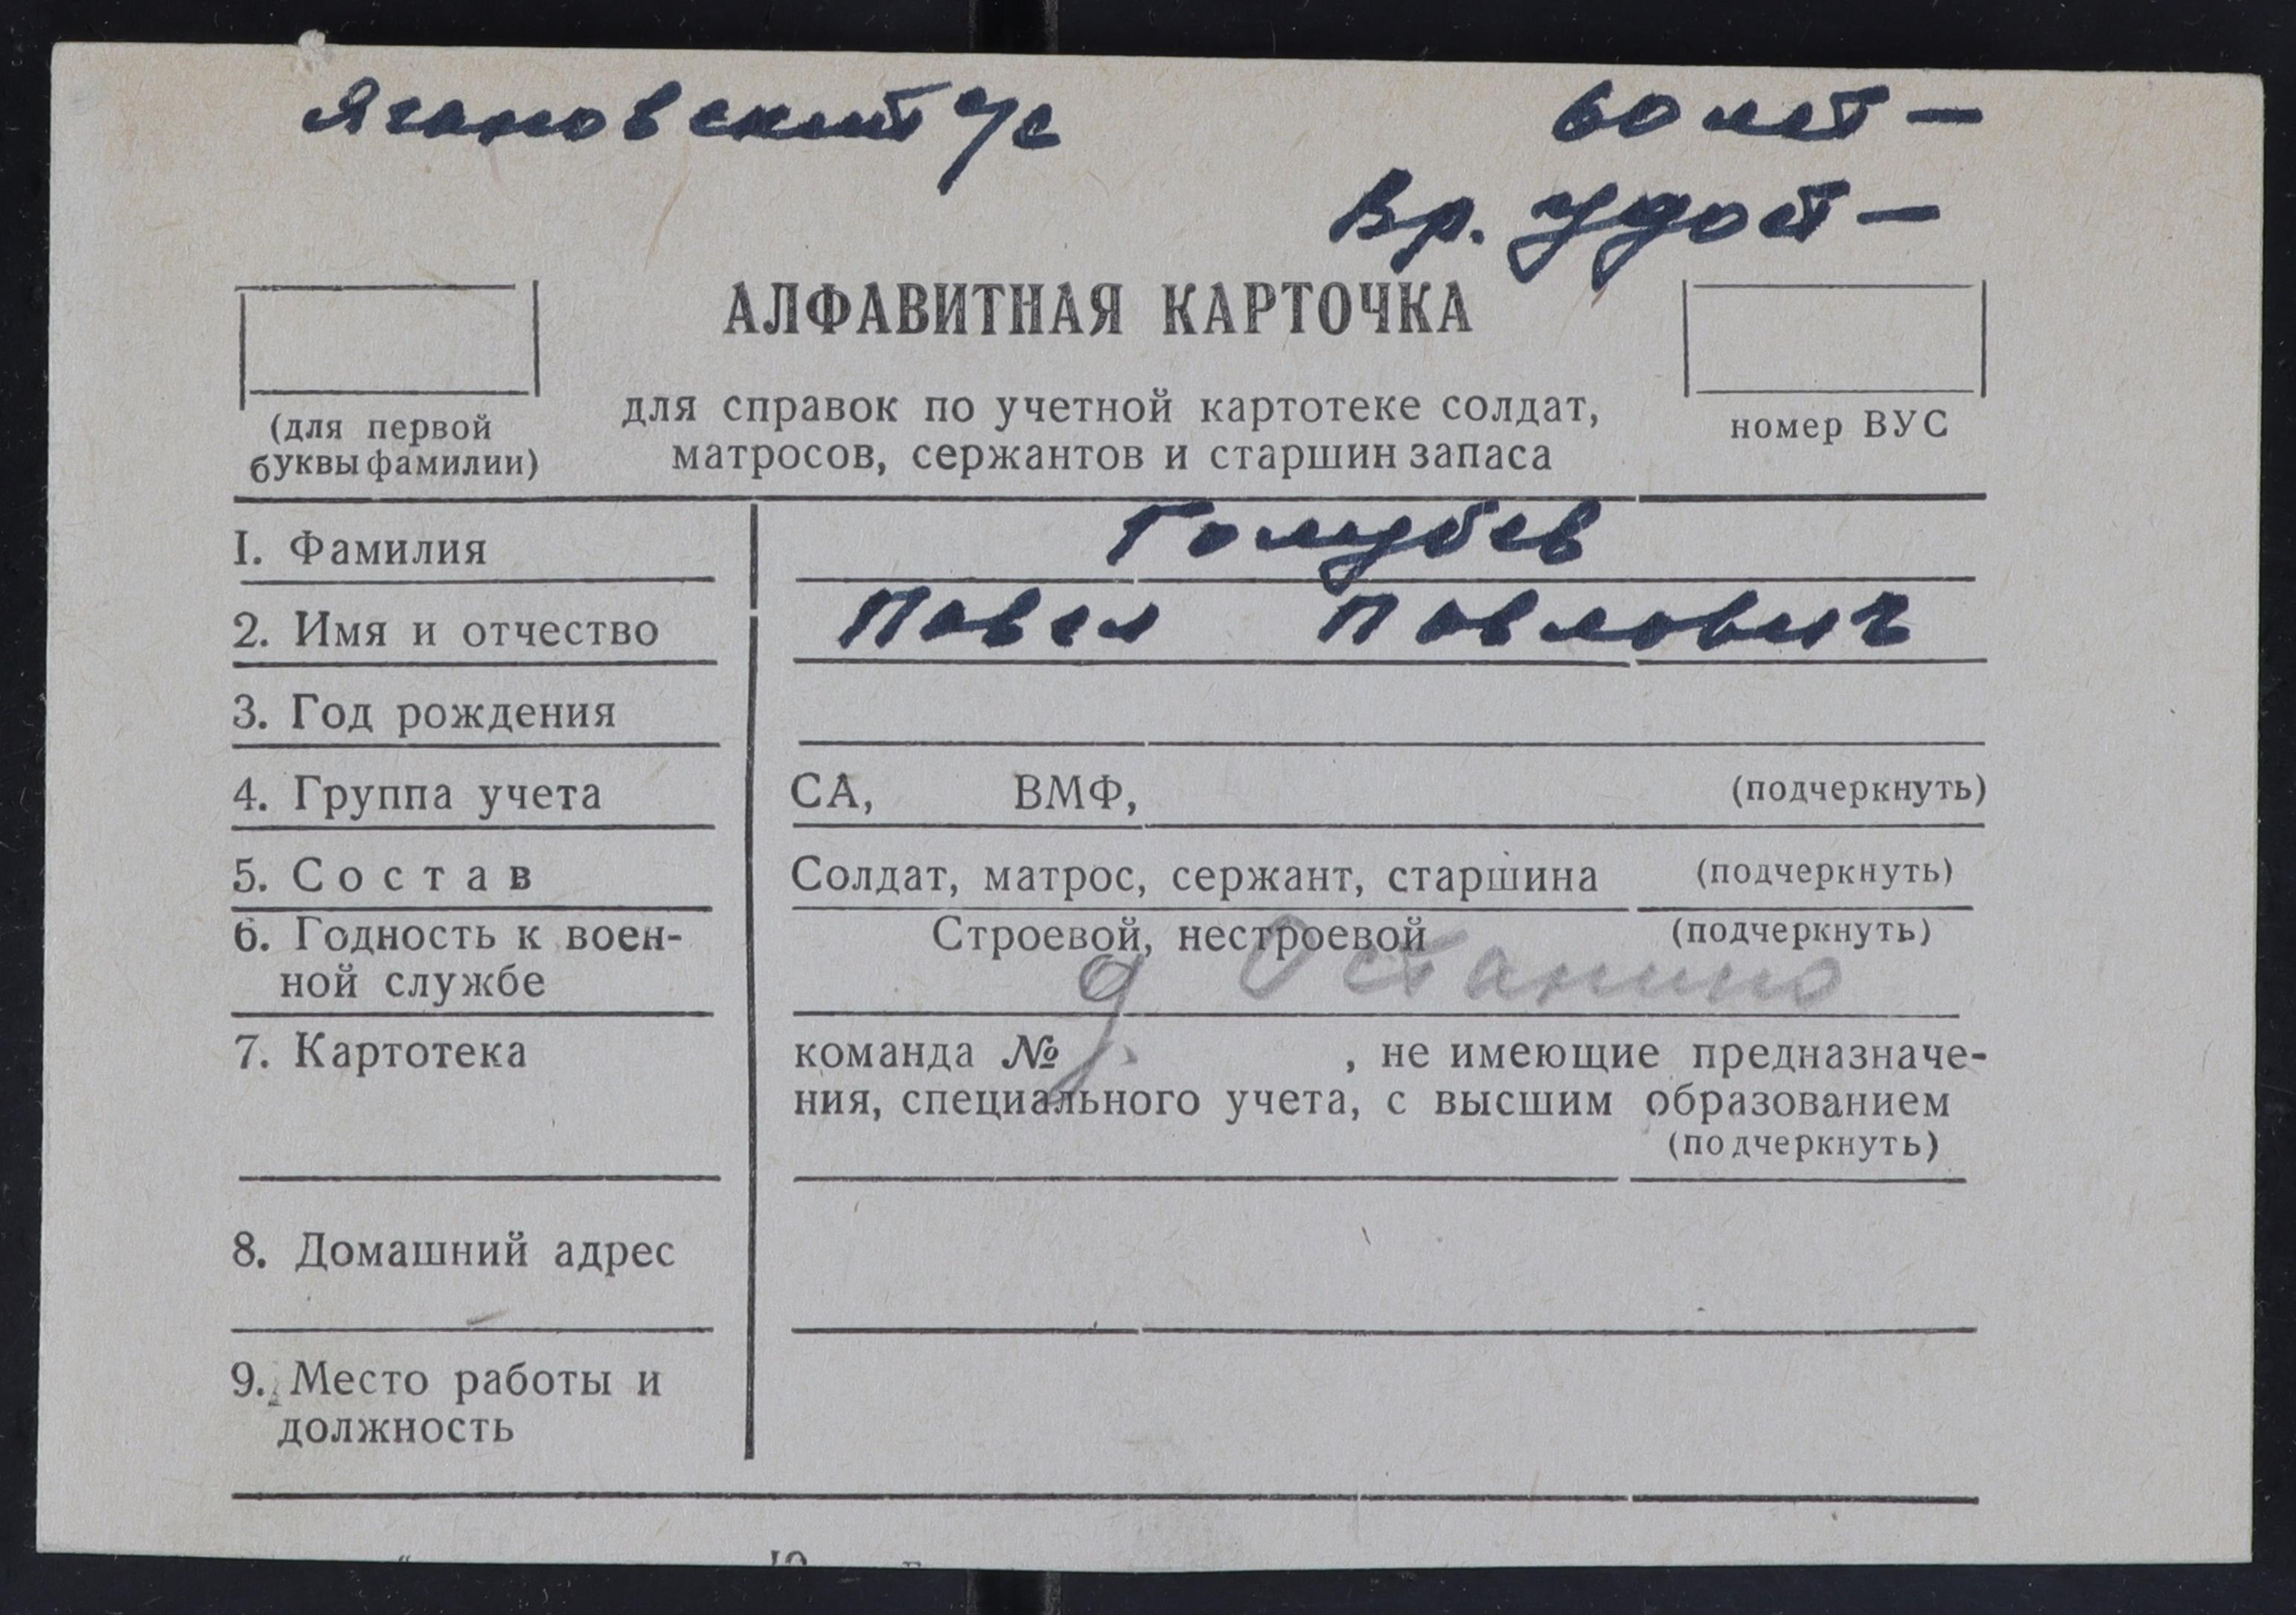 Ягановский с/с
60 лет —
Вр. удост —
АЛФАВИТНАЯ КАРТОЧКА
(для первой
буквы фамилии)
для справок по учетной картотеке солдат,
матросов, сержантов и старшин запаса
номер ВУС
I. Фамилия Голубев
2. Имя и отчество Павел Павлович
3. Год рождения
4. Группа учета СА, ВМФ, (подчеркнуть)
5. Состав Солдат, матрос, сержант, старшина (подчеркнуть)
6. Годность к воен-
ной службе
Строевой, нестроевой (подчеркнуть)
д. Останино
7. Картотека команда № , не имеющие предназначе-
ния, специального учета, с высшим образованием
(подчеркнуть)
8. Домашний адрес
9. Место работы и
должность